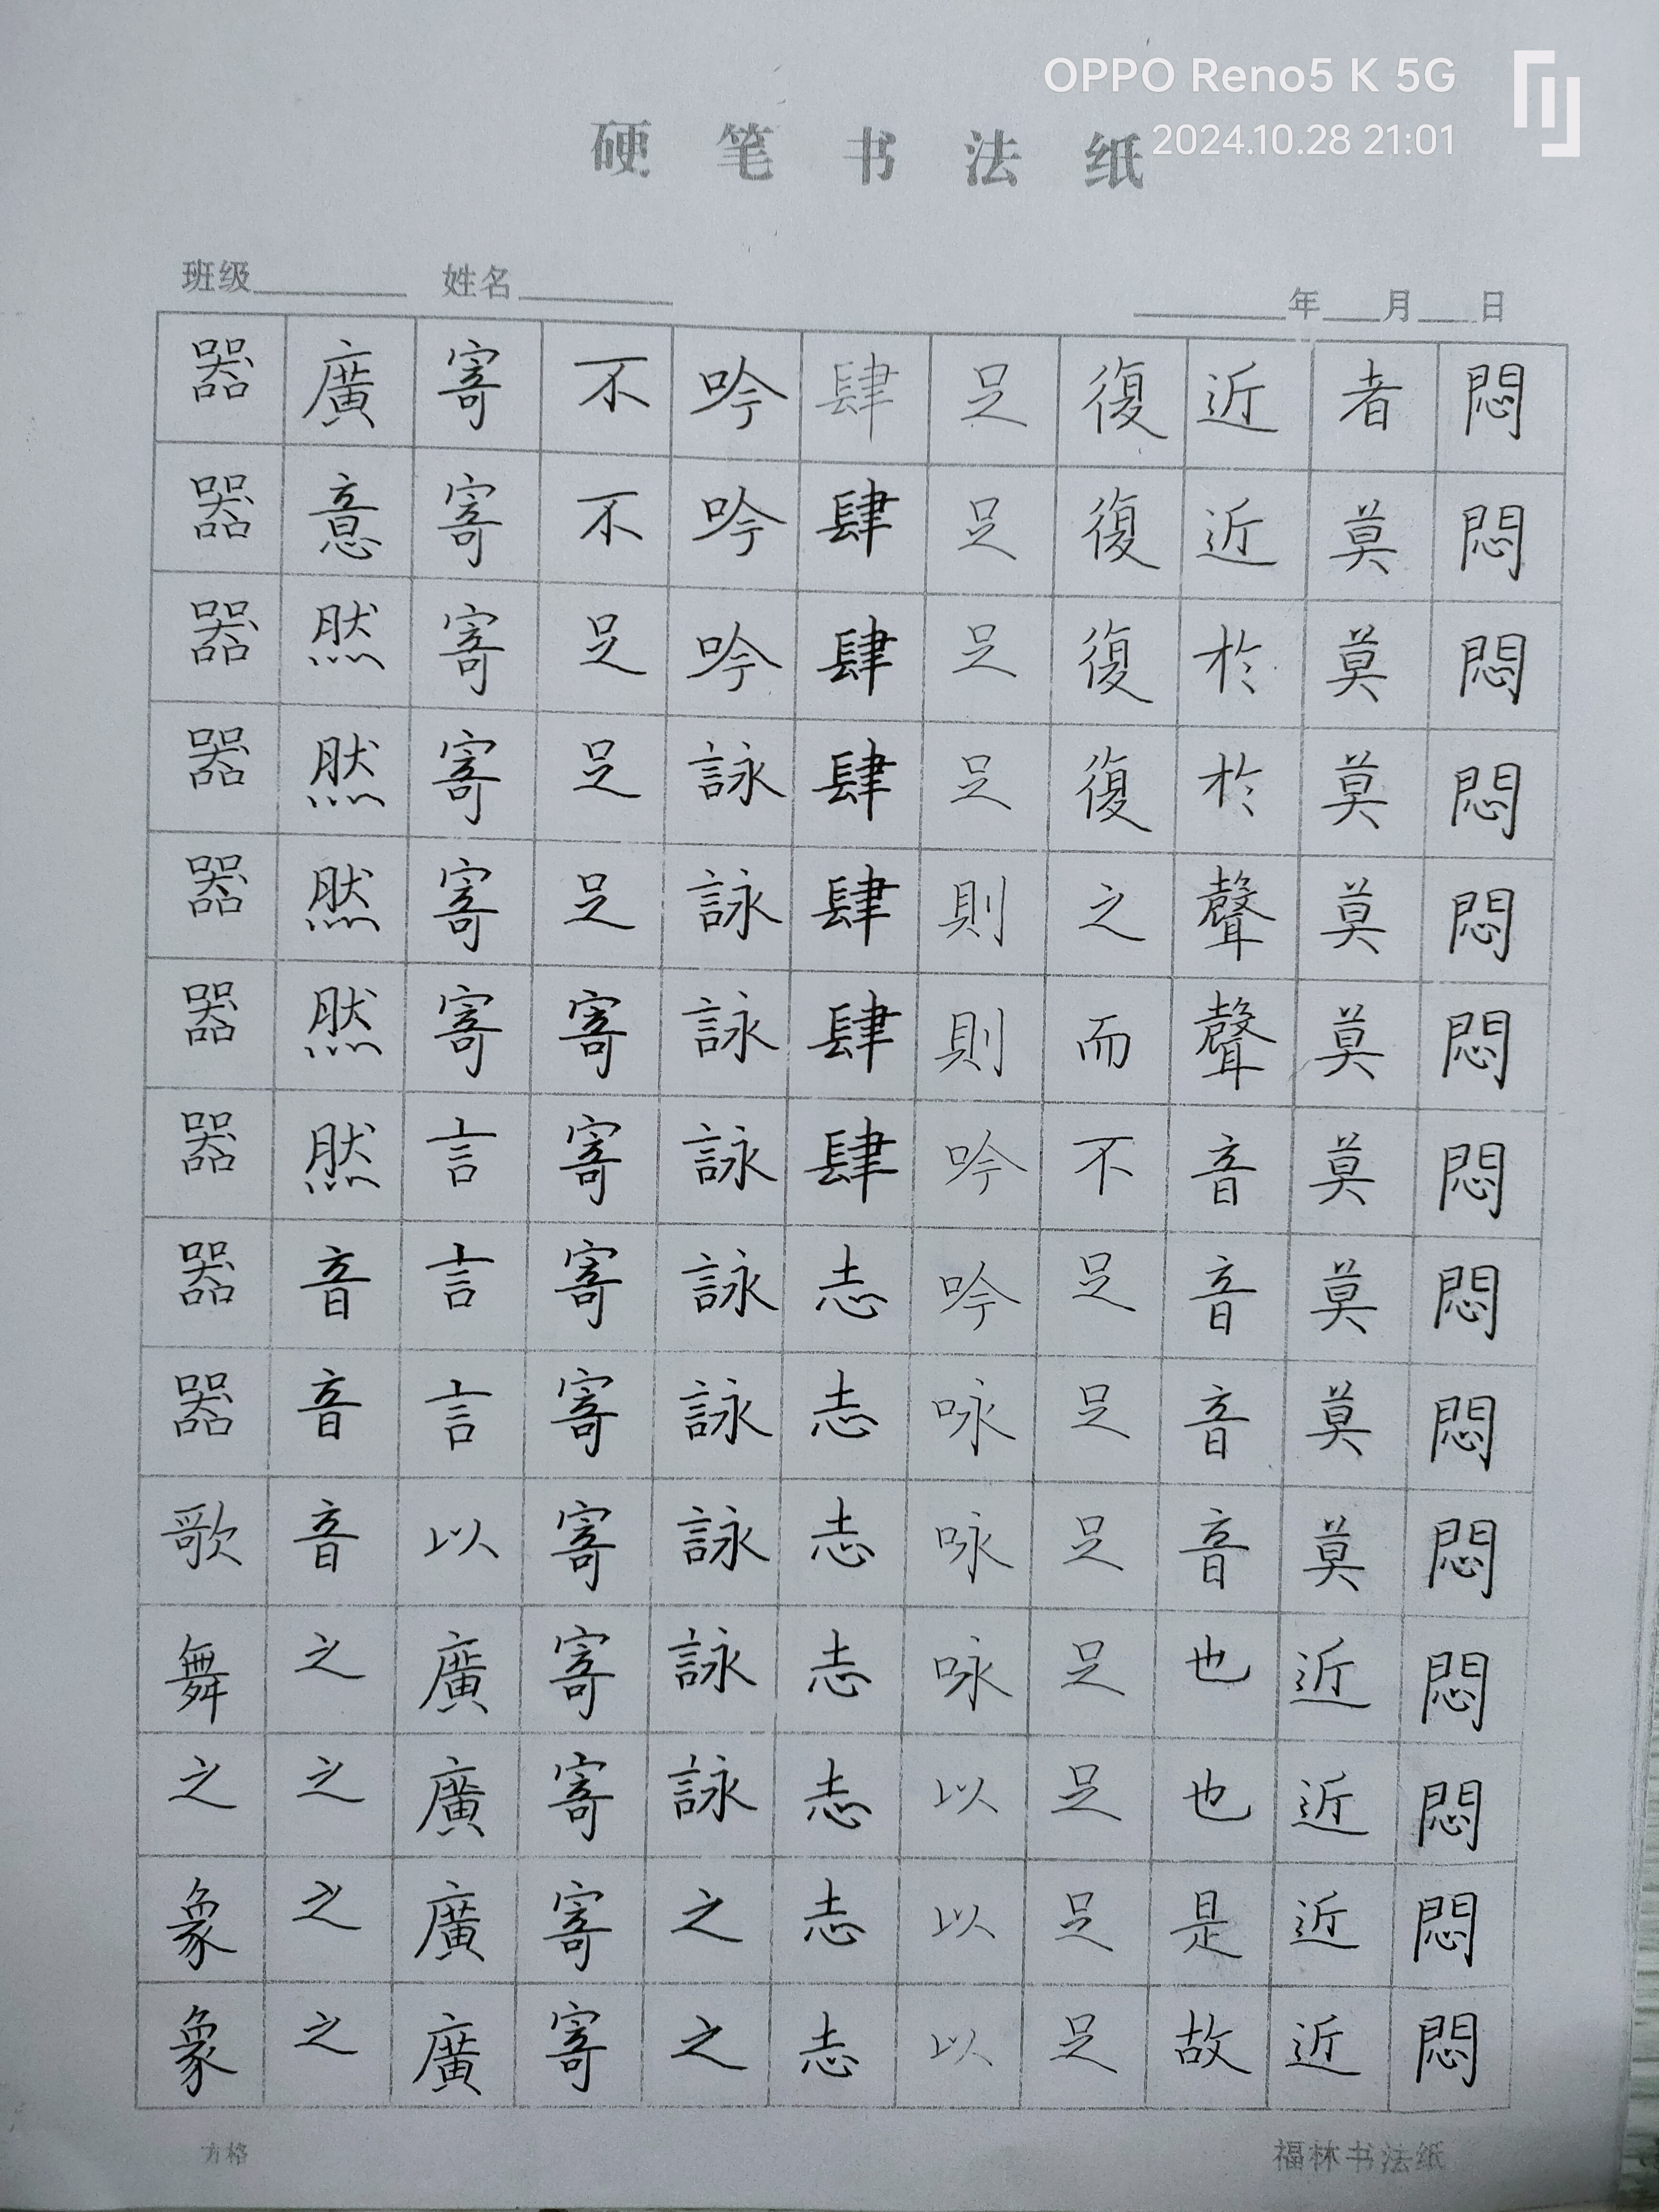 OPPO Reno5 K 5G
2024.10.28 21:01
硬笔书法纸
班级 姓名 年 月 日
悶悶悶悶悶悶悶悶悶悶悶悶悶悶
者莫莫莫莫莫莫莫莫莫近近近近
近近於於聲聲音音音音也也是故
復復復復之而不足足足足足足足
足足足足則則吟吟咏咏咏以以以
肆肆肆肆肆肆肆志志志志志志志
吟吟吟詠詠詠詠詠詠詠詠詠之之
不不足足足寄寄寄寄寄寄寄寄寄
寄寄寄寄寄寄言言言以廣廣廣廣
廣意然然然然然音音音之之之之
器器器器器器器器器歌舞之象象
方格
福林书法纸